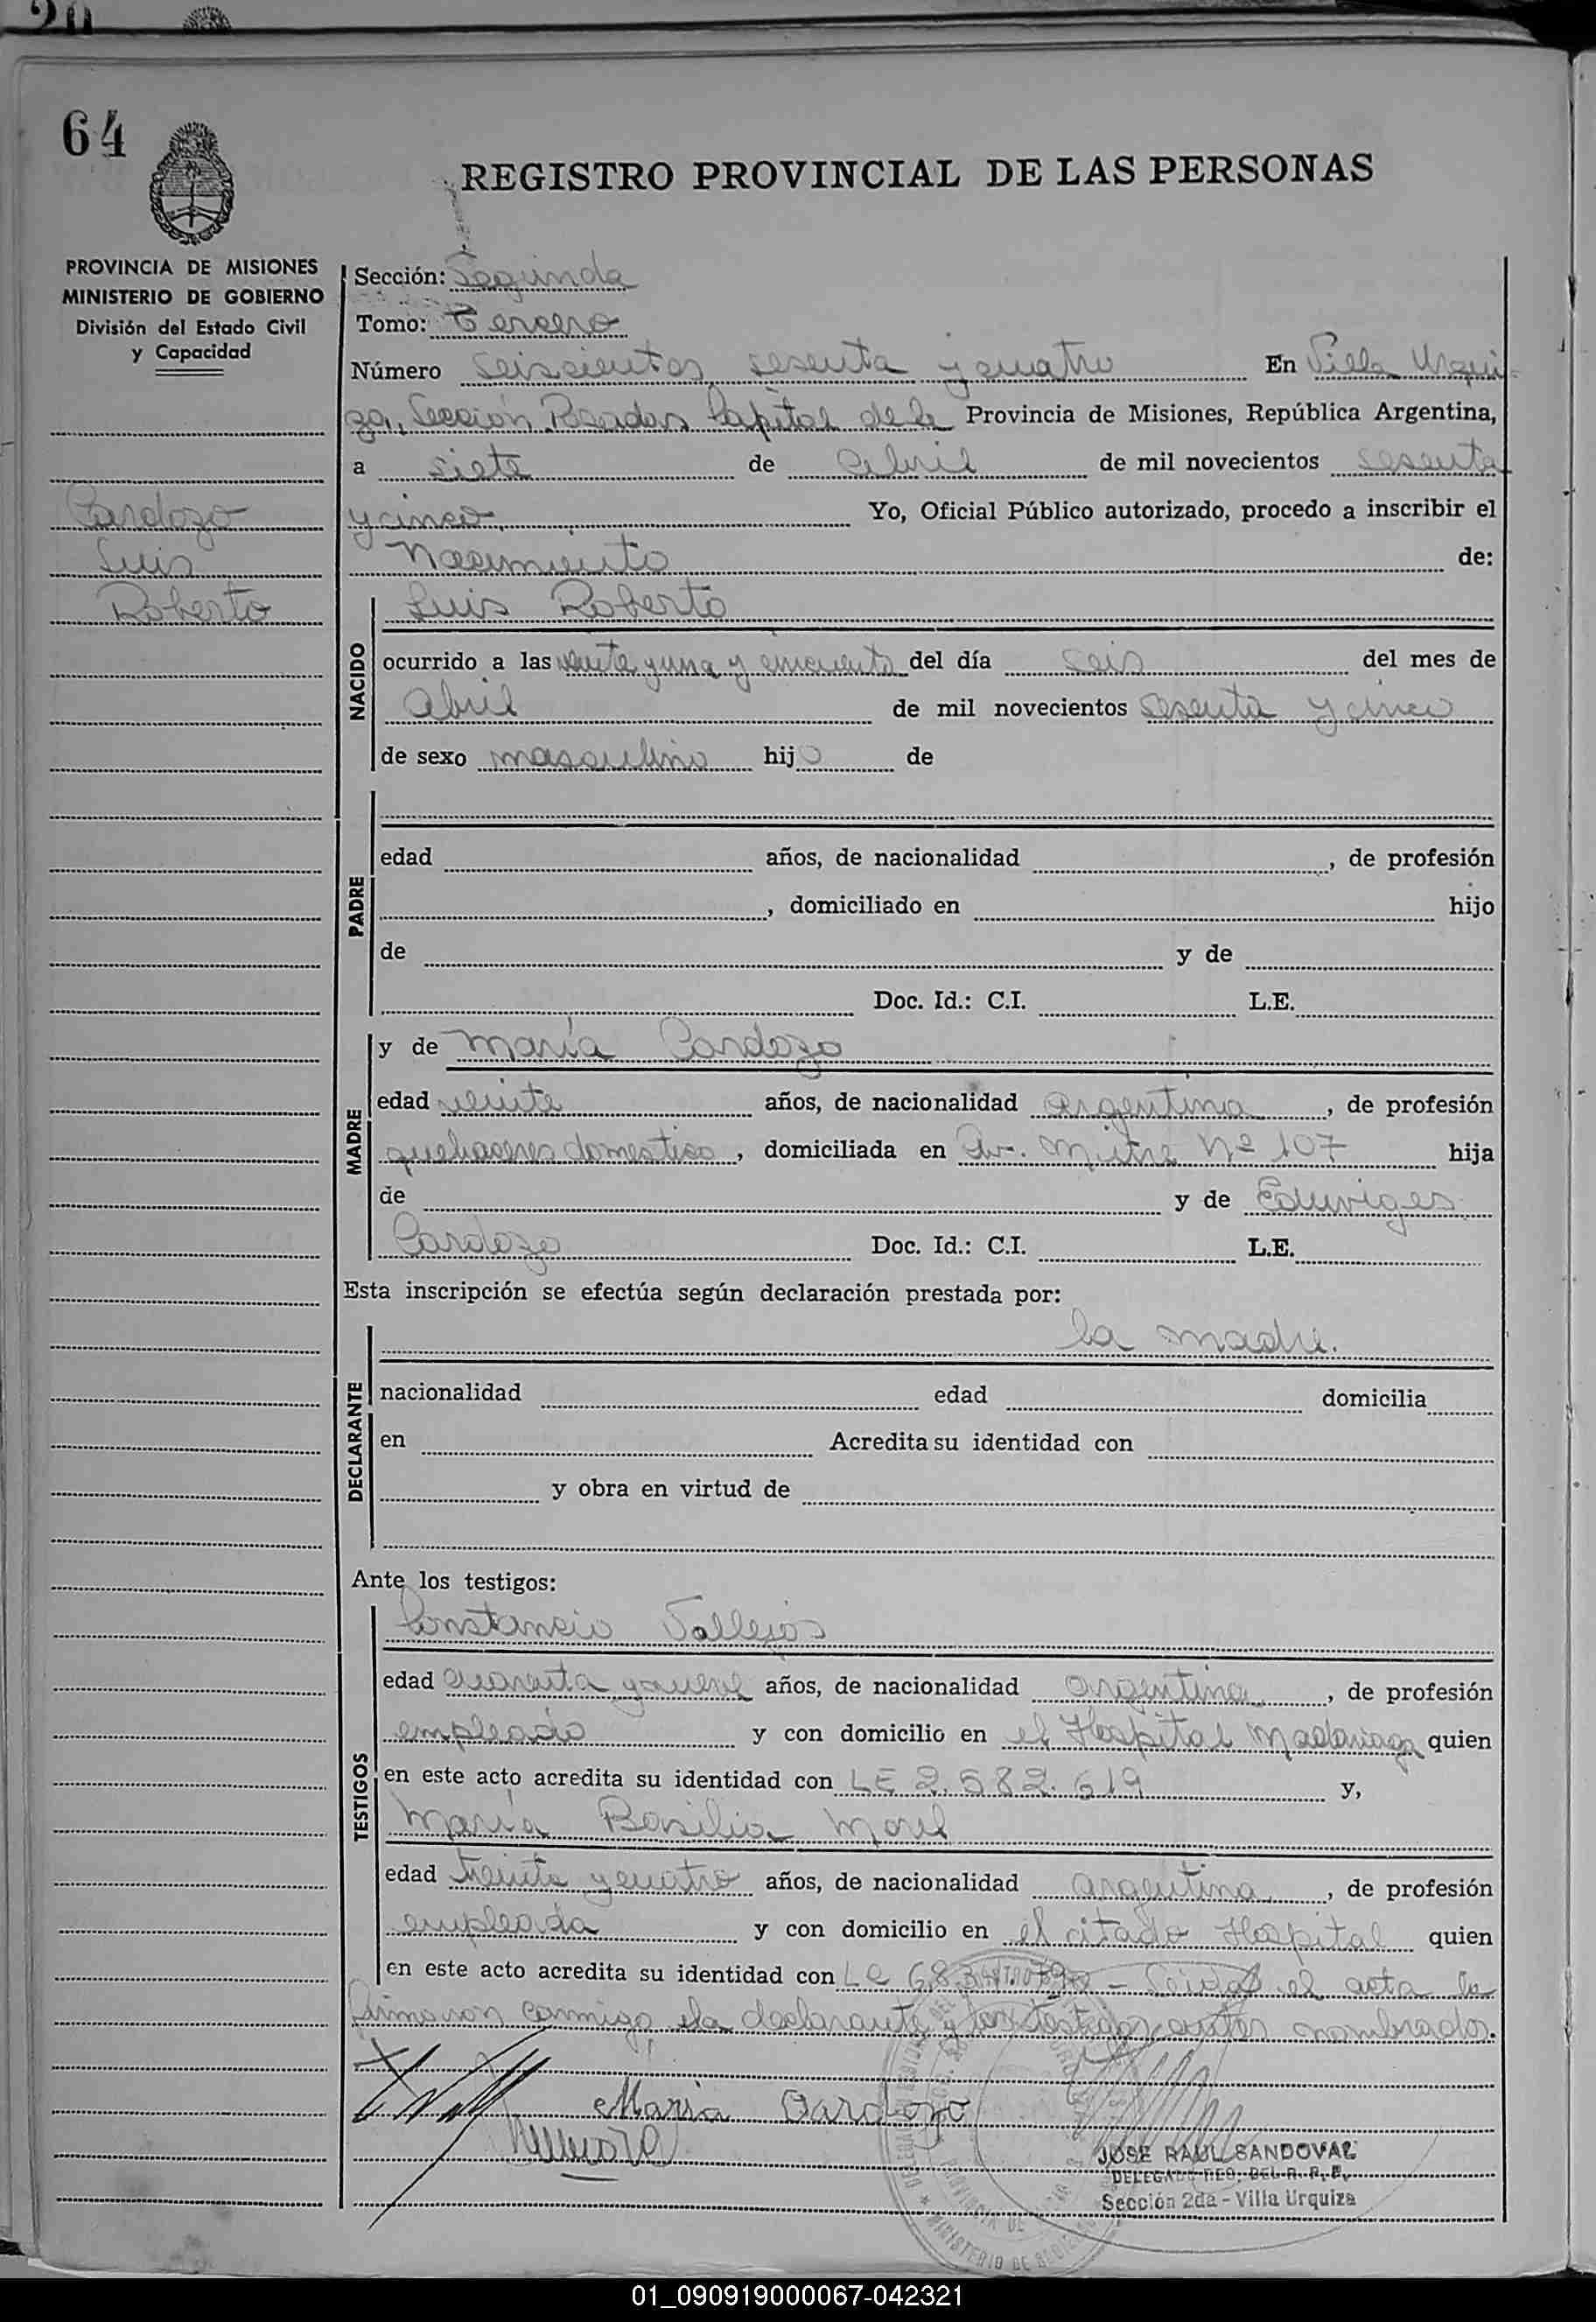 64
REGISTRO PROVINCIAL DE LAS PERSONAS
PROVINCIA DE MISIONES
MINISTERIO DE GOBIERNO
División del Estado Civil
y Capacidad
Cardozo
Luis
Roberto
Sección: Segunda
Tomo: Tercero
Número seiscientos sesenta y cuatro En Villa Urqui-
za, Sección Posadas Capital de la Provincia de Misiones, República Argentina,
a siete de abril de mil novecientos sesenta
y cinco Yo, Oficial Público autorizado, procedo a inscribir el
Nacimiento de:
NACIDO
Luis Roberto
ocurrido a las veinte y una y cincuenta del día seis del mes de
abril de mil novecientos sesenta y cinco
de sexo masculino hijo de
PADRE
edad años, de nacionalidad , de profesión
, domiciliado en hijo
de y de
Doc. Id.: C.I. L.E.
MADRE
y de María Cardozo
edad veinte años, de nacionalidad argentina, de profesión
quehaceres domestico, domiciliada en Av. Mitre Nº 107 hija
de y de Eduviges
Cardozo Doc. Id.: C.I. L.E.
Esta inscripción se efectúa según declaración prestada por:
la madre.
DECLARANTE
nacionalidad edad domicilia
en Acredita su identidad con
y obra en virtud de
Ante los testigos:
TESTIGOS
Constancio Vallejos
edad cuarenta y nueve años, de nacionalidad argentina, de profesión
empleado y con domicilio en el Hospital Madariaga quien
en este acto acredita su identidad con LE 2.582.619 y,
María Basilia Morel
edad treinta y cuatro años, de nacionalidad argentina, de profesión
empleada y con domicilio en el citado Hospital quien
en este acto acredita su identidad con LC - Leida el acta la
firmaron conmigo, la declarante y los testigos antes nombrados.
Maria Cardozo
JOSE RAUL SANDOVAL
DELEGADO REG. DEL R. P. P.
Sección 2da - Villa Urquiza
01_090919000067-042321